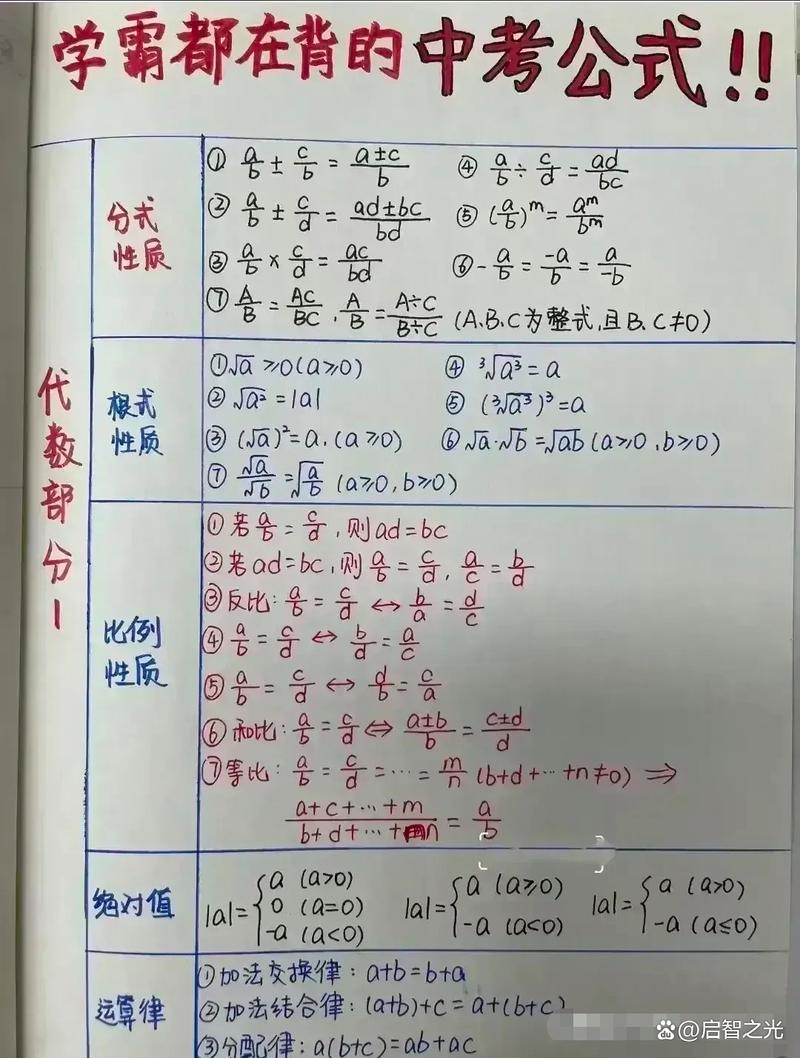 学霸都在背的中考公式!!
代数部分1
分式性质
① a/b ± c/b = (a±c)/b ④ a/b ÷ c/d = ad/bc
② a/b ± c/d = (ad±bc)/bd ⑤ (a/b)^m = a^m/b^m
③ a/b × c/d = ac/bd ⑥ -a/b = -a/b = a/-b
⑦ A/B = AC/BC , A/B = (A÷C)/(B÷C) (A.B.C为整式,且B.C≠0)
根式性质
①√a ≥0(a≥0) ④ ³√a³ = a
② √a² = |a| ⑤ (³√a³)³=a
③ (√a)²=a.(a≥0) ⑥√a·√b=√ab(a≥0,b≥0)
⑦ √a/√b = √(a/b) (a≥0,b≥0)
比例性质
①若a/b = c/d ,则ad=bc
②若ad=bc,则a/b = c/d , a/c = b/d
③反比: a/b = c/d ↔ b/a = d/c
④ a/b = c/d ↔ b/d = a/c
⑤ a/b = c/d ↔ d/b = c/a
⑥和比: a/b = c/d ⇔ (a±b)/b = (c±d)/d
⑦等比: a/b = c/d =···= m/n (b+d+···+n≠0) ⇒
(a+c+···+m)/(b+d+···+n) = a/b
绝对值
|a|={a (a>0) 0 (a=0) -a (a<0)
|a|={a (a≥0) -a (a<0)
|a|={a (a>0) -a (a≤0)
运算律
①加法交换律: a+b=b+a
②加法结合律: (a+b)+c=a+(b+c)
③分配律: a(b+c)=ab+ac
Bai du @启智之光